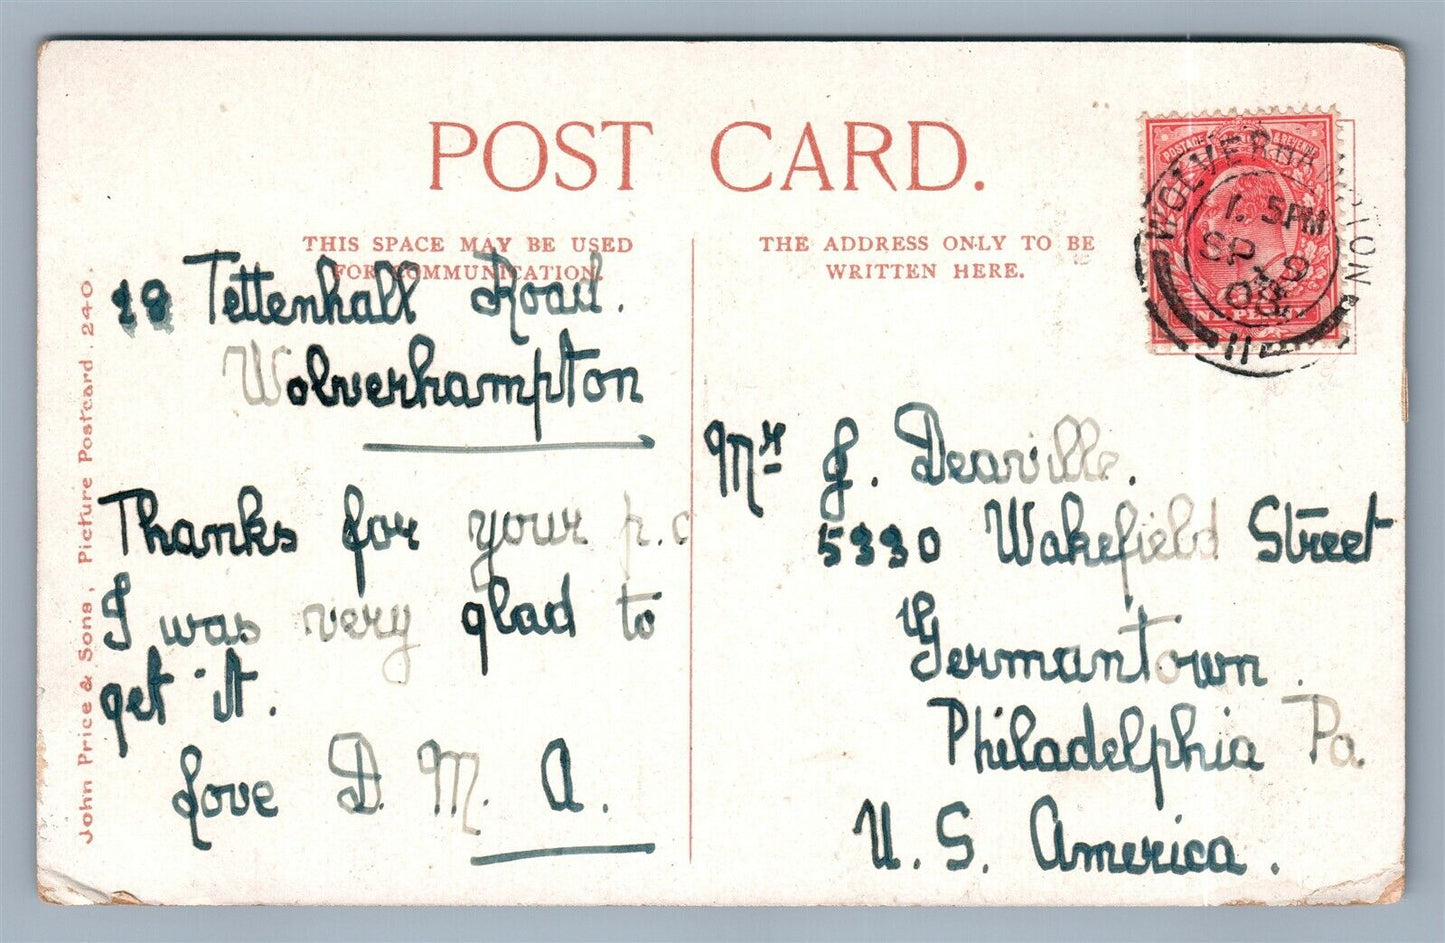 POST CARD.
THIS SPACE MAY BE USED
FOR COMMUNICATION.
THE ADDRESS ONLY TO BE
WRITTEN HERE.
John Price & Sons, Picture Postcard. 240.
Tettenhall Road.
Wolverhampton
Thanks for your p.c
I was very glad to
get it.
Love D. M. A.
POSTAGE & REVENUE
WOLVERHAMPTON
1. 5PM
SP 9
08
Mr J. Deaville.
5330 Wakefield Street
Germantown.
Philadelphia Pa.
U. S. America.